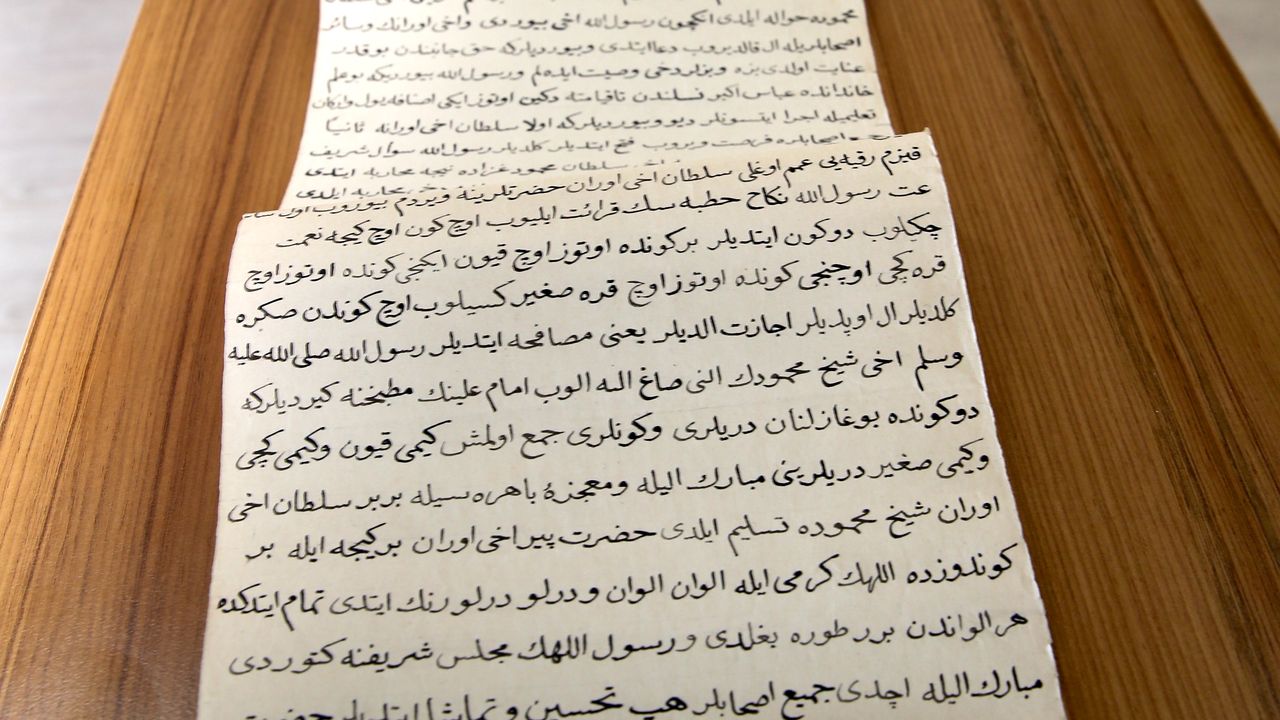 محموده حواله ایلدی انکچون رسول الله اخی بیوردی واخی اورانك وسائر
اصحابلریله ال قالدیروب دعا ایتدی وبیوردیلرکه حق جانبندن بو قدر
عنایت اولدی بزه وبزلردخی وصیت ایده لم ورسول الله بیوردیکه بو علم
خاندانده عباس اکبر نسلندن تاقیامته دکین اوتوز ایکی اصنافه یول وارکان
تعلیمله اجرا ایتسونلر دیو وبیوردیلرکه اولا سلطان اخی اورانه ثانیا
اصحابلره فرصت ویروب فتح ایتدیلر کلدیلر رسول الله سؤال شریف
سلطان محمود غزاده نیجه محاربه ایتدی
محاربه ایلدی
قیزم رقیه یی عمم اوغلی سلطان اخی اوران حضرتلرینه ویردم بیوروب
عت رسول الله نکاح خطبه سك قرائت ایلیوب اوچ کون اوچ کیجه نعمت
چکیلوب دوکون ایتدیلر برکونده اوتوز اوچ قیون ایکنجی کونده اوتوز اوچ
قره کچی اوچنجی کونده اوتوز اوچ قره صغیر کسیلوب اوچ کوندن صکره
کلدیلر ال اوپدیلر اجازت الدیلر یعنی مصافحه ایتدیلر رسول الله صلی الله علیه
وسلم اخی شیخ محمودك النی صاغ النه الوب امام علینك مطبخنه کیردیلرکه
دوکونده بوغازلنان دریلری وکونلری جمع اولمش کیمی قیون وکیمی کچی
وکیمی صغیر دریلرینی مبارك الیله ومعجزۀ باهره سیله بربر سلطان اخی
اوران شیخ محموده تسلیم ایلدی حضرت پیر اخی اوران برکیجه ایله بر
کوندوزده اللهك کرمی ایله الوان الوان ودرلو درلو رنك ایتدی تمام ایتدکده
هر الواندن برر طوره بغلدی ورسول اللهك مجلس شریفنه کتوردی
مبارك الیله اچدی جمیع اصحابلر هپ تحسین وتماشا ایتدیلر حضرت